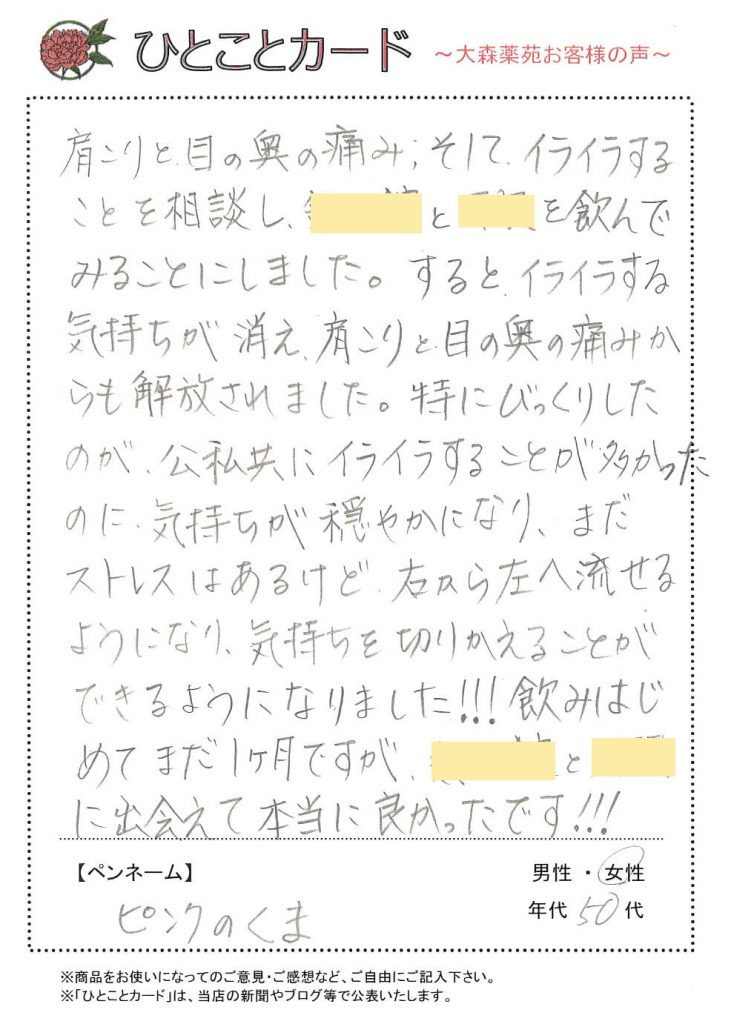 ひとことカード ～大森薬苑お客様の声～
肩こりと、目の奥の痛み、そして、イライラする
ことを相談し、と を飲んで
みることにしました。すると、イライラする
気持ちが消え、肩こりと、目の奥の痛みか
らも解放されました。特にびっくりした
のが、公私共にイライラすることが多かった
のに、気持ちが穏やかになり、まだ
ストレスはあるけど、右から左へ流せる
ようになり、気持ちを切りかえることが
できるようになりました!!!飲みはじ
めてまだ1ヶ月ですが、と
に出会えて本当に良かったです!!!
【ペンネーム】 男性・女性
ピンクのくま 年代 50代
※商品をお使いになってのご意見・ご感想など、ご自由にご記入下さい。
※「ひとことカード」は、当店の新聞やブログ等で公表いたします。